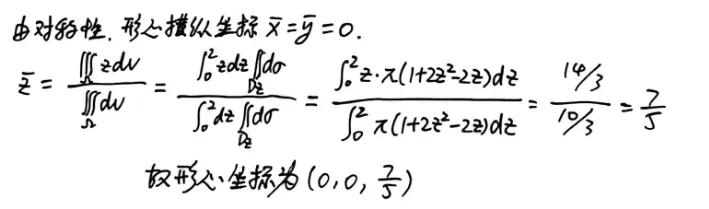 由对称性,形心横纵坐标 x̄=ȳ=0.
z̄ = ∭_Ω zdv / ∭_Ω dv = ∫₀² zdz ∬_{Dz} dσ / ∫₀² dz ∬_{Dz} dσ = ∫₀² z·π(1+2z²-2z)dz / ∫₀² π(1+2z²-2z)dz = 14/3 / 10/3 = 7/5
故形心坐标为 (0,0,7/5)